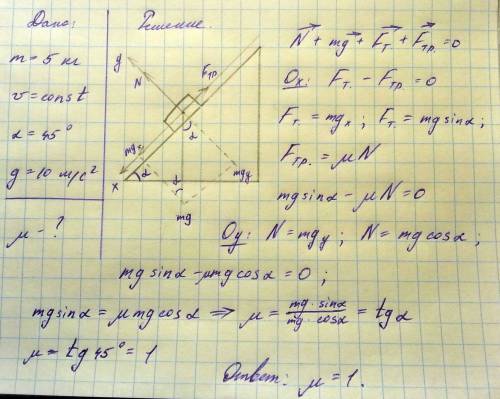 Дано:
m = 5 кг
v = const
α = 45°
g = 10 м/с²
μ - ?
Решение.
y
N
Fтр.
mgx
x
α
α
mgy
mg
N + mg + Fт. + Fтр. = 0
Ox: Fт. - Fтр. = 0
Fт. = mgx ; Fт. = mg sinα ;
Fтр. = μN
mg sinα - μN = 0
Oy: N = mgy ; N = mg cosα ;
mg sinα - μmg cosα = 0 ;
mg sinα = μmg cosα ⇒ μ = mg · sinα / mg · cosα = tgα
μ = tg 45° = 1
Ответ: μ = 1.